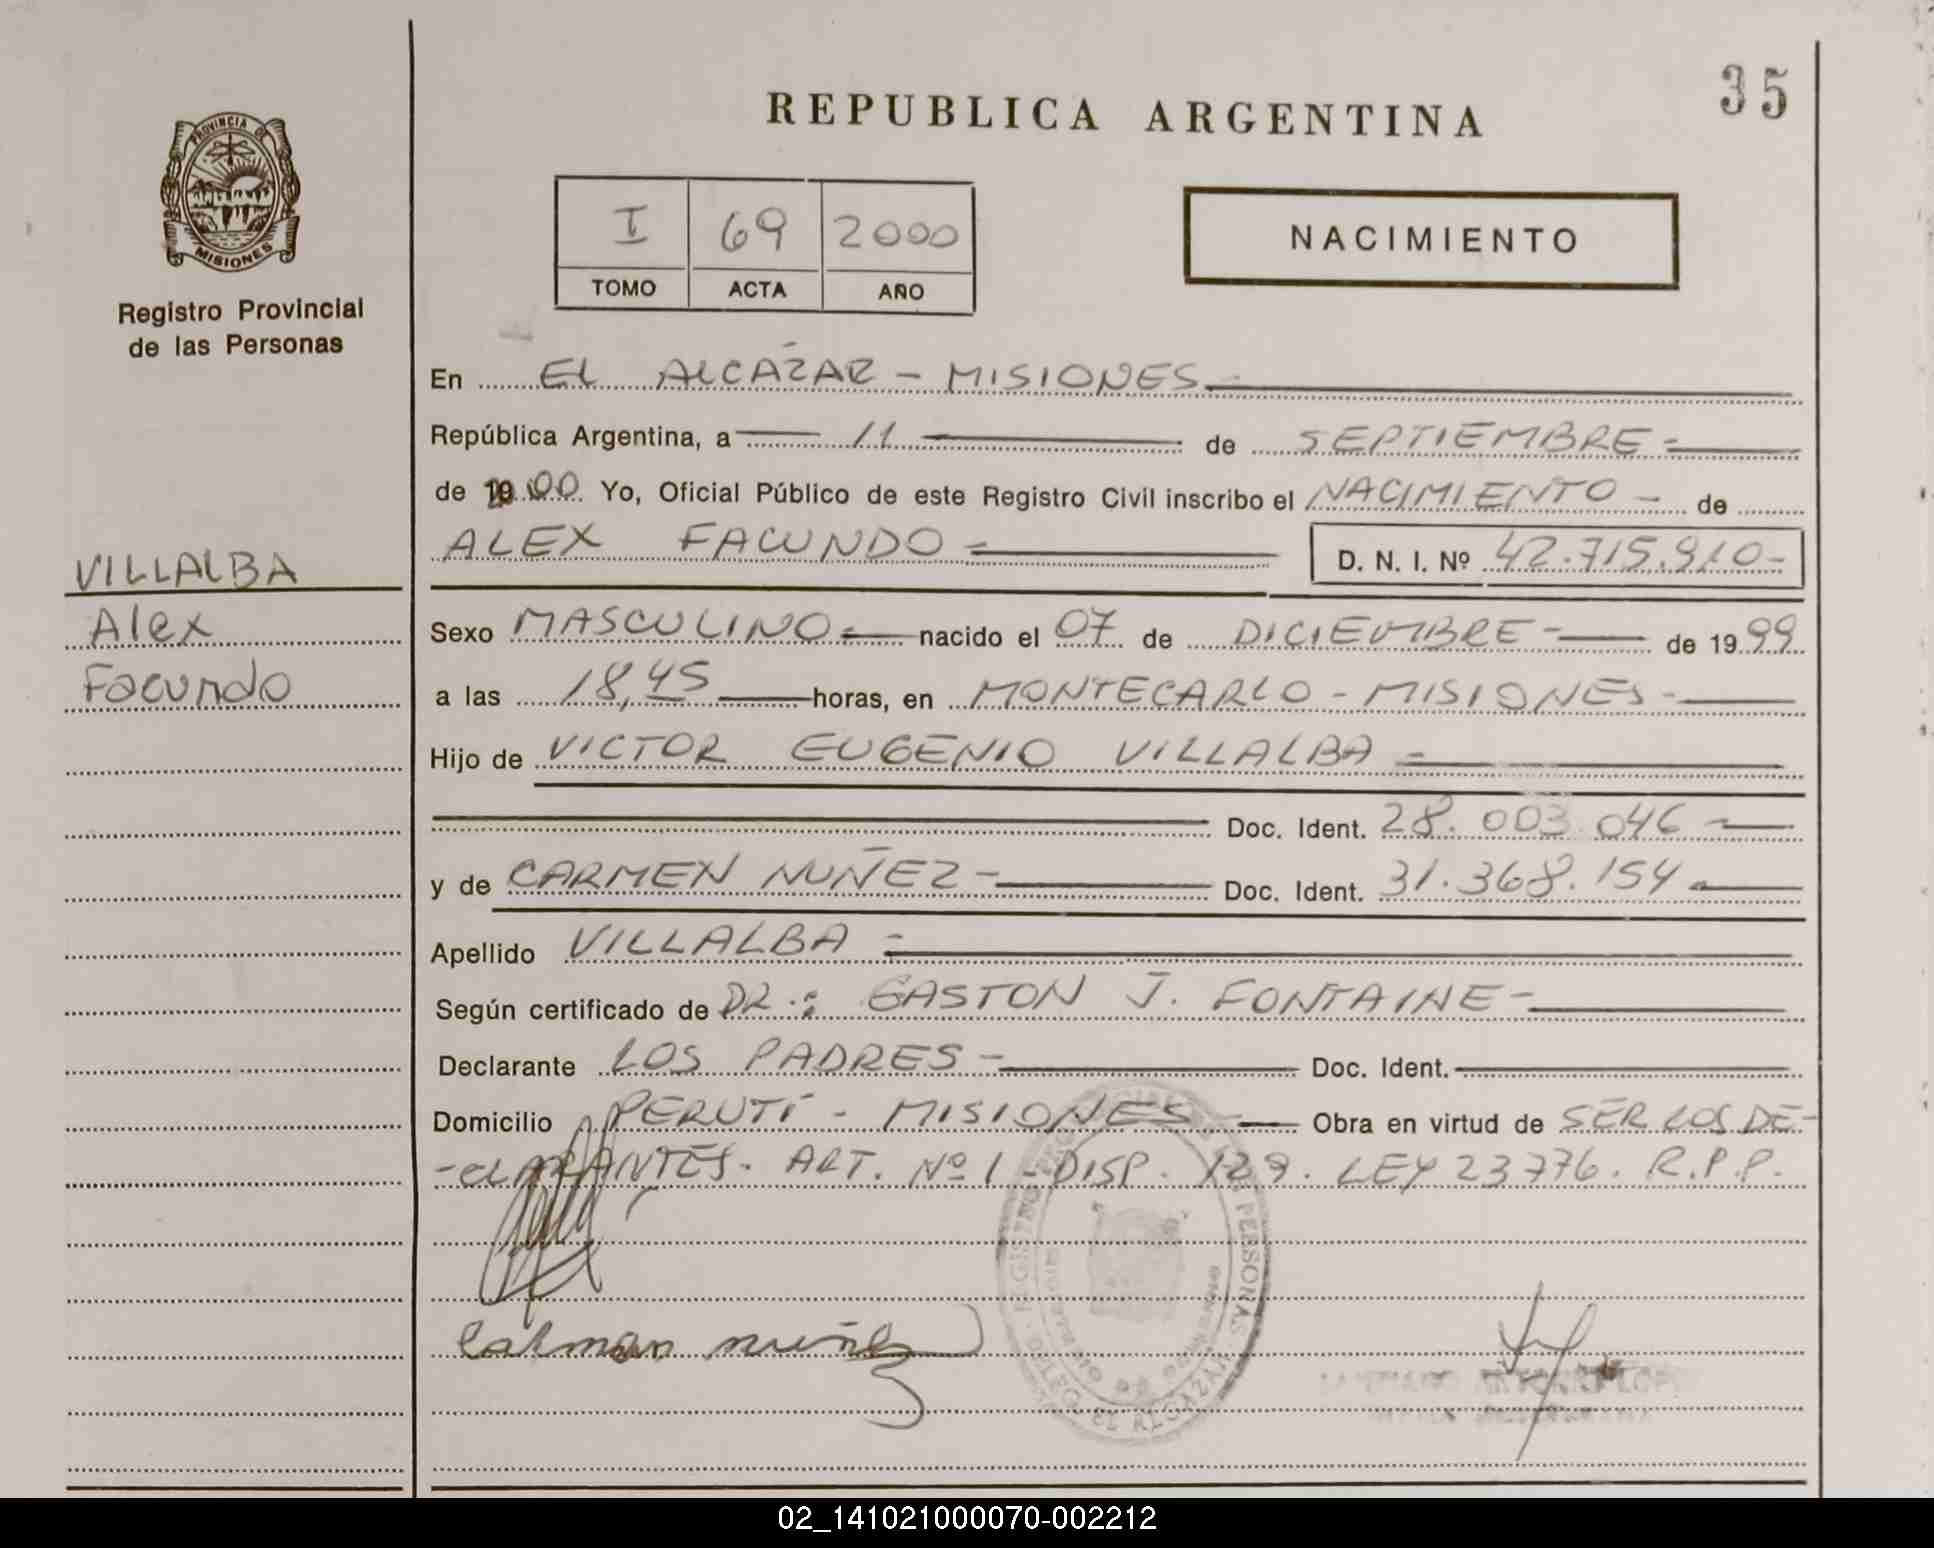 35
REPUBLICA ARGENTINA
PROVINCIA DE
MISIONES
Registro Provincial
de las Personas
I 69 2000
TOMO ACTA AÑO
NACIMIENTO
En EL ALCÁZAR - MISIONES -
República Argentina, a 11 de SEPTIEMBRE -
de 2000 Yo, Oficial Público de este Registro Civil inscribo el NACIMIENTO - de
ALEX FACUNDO - D. N. I. Nº 42.715.910-
VILLALBA
Alex
Facundo
Sexo MASCULINO - nacido el 07 de DICIEMBRE - de 1999
a las 18,45 horas, en MONTECARLO - MISIONES -
Hijo de VICTOR EUGENIO VILLALBA -
Doc. Ident. 28.003.046 -
y de CARMEN NUÑEZ - Doc. Ident. 31.368.154 -
Apellido VILLALBA -
Según certificado de DR.: GASTON J. FONTAINE -
Declarante LOS PADRES - Doc. Ident.
Domicilio PERUTÍ - MISIONES - Obra en virtud de SER LOS DE-
-CLARANTES. ART. Nº 1 - DISP. 129. LEY 23776. R.P.P.
Carmen nuñez
DELEG. EL ALCAZAR
02_141021000070-002212